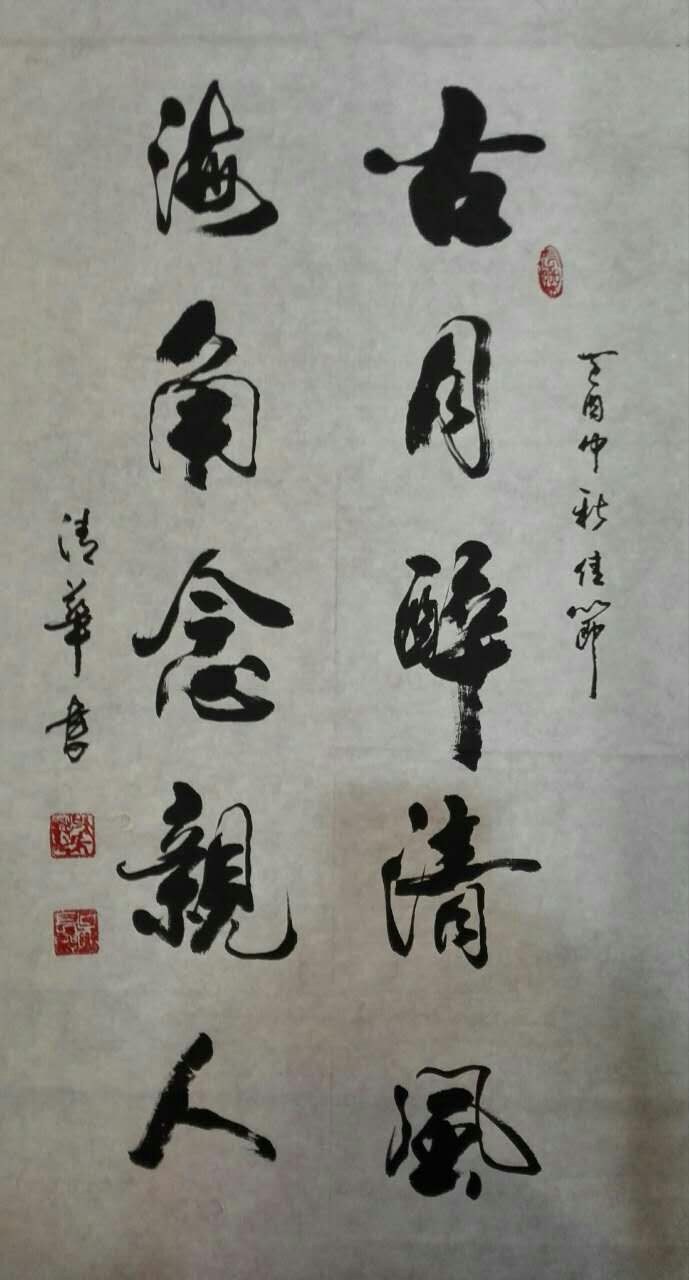 丁酉仲秋佳節
古月醉清風
海角念親人
清華書